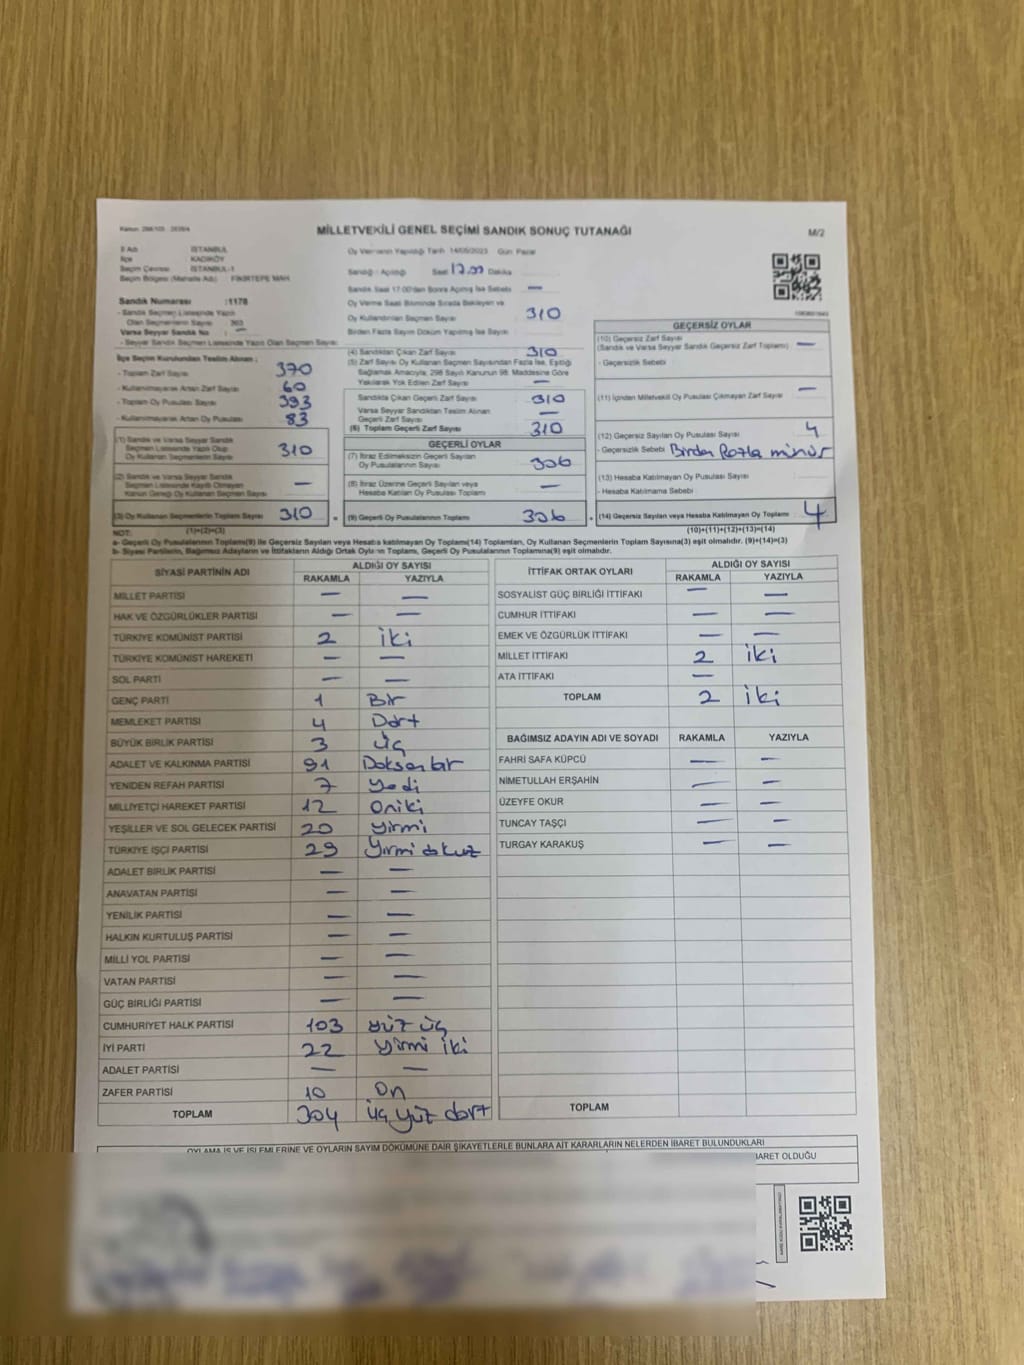 MİLLETVEKİLİ GENEL SEÇİMİ SANDIK SONUÇ TUTANAĞI
M/2
İl Adı : İSTANBUL
İlçe : KADIKÖY
Seçim Çevresi : İSTANBUL-1
Seçim Bölgesi (Mahalle Adı) : FİKİRTEPE MAH.
Oy Vermenin Yapıldığı Tarih 14/05/2023 Gün Pazar
Sandığı Açıldığı Saat 17.00 Dakika
Sandık Saat 17.00'den Sonra Açılmış İse Sebebi —
Oy Verme Saati Bitiminde Sırada Bekleyen ve
Oy Kullandırılan Seçmen Sayısı 310
Birden Fazla Sayım Döküm Yapılmış İse Sayısı
Sandık Numarası :1178
- Sandık Seçmen Listesinde Yazılı
Olan Seçmenlerin Sayısı 363
Varsa Seyyar Sandık No : —
- Seyyar Sandık Seçmen Listesinde Yazılı Olan Seçmen Sayısı
İlçe Seçim Kurulundan Teslim Alınan :
- Toplam Zarf Sayısı 370
- Kullanılmayarak Artan Zarf Sayısı 60
- Toplam Oy Pusulası Sayısı 393
- Kullanılmayarak Artan Oy Pusulası 83
(1) Sandık ve Varsa Seyyar Sandık
Seçmen Listesinde Yazılı Olup
Oy Kullanan Seçmenlerin Sayısı 310
(2) Sandık ve Varsa Seyyar Sandık
Seçmen Listesinde Kayıtlı Olmayan
Kanun Gereği Oy Kullanan Seçmen Sayısı —
(3) Oy Kullanan Seçmenlerin Toplam Sayısı 310
(1)+(2)=(3)
(4) Sandıktan Çıkan Zarf Sayısı 310
(5) Zarf Sayısı Oy Kullanan Seçmen Sayısından Fazla İse, Eşitliği
Sağlamak Amacıyla, 298 Sayılı Kanunun 98. Maddesine Göre
Yakılarak Yok Edilen Zarf Sayısı —
Sandıkta Çıkan Geçerli Zarf Sayısı 310
Varsa Seyyar Sandıktan Teslim Alınan
Geçerli Zarf Sayısı —
(6) Toplam Geçerli Zarf Sayısı 310
GEÇERLİ OYLAR
(7) İtiraz Edilmeksizin Geçerli Sayılan
Oy Pusulalarının Sayısı 306
(8) İtiraz Üzerine Geçerli Sayılan veya
Hesaba Katılan Oy Pusulası Toplamı —
= (9) Geçerli Oy Pusulalarının Toplamı 306
GEÇERSİZ OYLAR
(10) Geçersiz Zarf Sayısı
(Sandık ve Varsa Seyyar Sandık Geçersiz Zarf Toplamı) —
- Geçersizlik Sebebi
(11) İçinden Milletvekili Oy Pusulası Çıkmayan Zarf Sayısı —
(12) Geçersiz Sayılan Oy Pusulası Sayısı 4
- Geçersizlik Sebebi Birden Fazla mühür
(13) Hesaba Katılmayan Oy Pusulası Sayısı
- Hesaba Katılmama Sebebi
+ (14) Geçersiz Sayılan veya Hesaba Katılmayan Oy Toplamı 4
(10)+(11)+(12)+(13)=(14)
NOT:
a- Geçerli Oy Pusulalarının Toplamı(9) ile Geçersiz Sayılan veya Hesaba katılmayan Oy Toplamı(14) Toplamları, Oy Kullanan Seçmenlerin Toplam Sayısına(3) eşit olmalıdır. (9)+(14)=(3)
b- Siyasi Partilerin, Bağımsız Adayların ve İttifakların Aldığı Ortak Oyların Toplamı, Geçerli Oy Pusulalarının Toplamına(9) eşit olmalıdır.
SİYASİ PARTİNİN ADI ALDIĞI OY SAYISI
RAKAMLA YAZIYLA
MİLLET PARTİSİ — —
HAK VE ÖZGÜRLÜKLER PARTİSİ — —
TÜRKİYE KOMÜNİST PARTİSİ 2 iki
TÜRKİYE KOMÜNİST HAREKETİ — —
SOL PARTİ — —
GENÇ PARTİ 1 Bir
MEMLEKET PARTİSİ 4 Dört
BÜYÜK BİRLİK PARTİSİ 3 üç
ADALET VE KALKINMA PARTİSİ 91 Doksanbir
YENİDEN REFAH PARTİSİ 7 yedi
MİLLİYETÇİ HAREKET PARTİSİ 12 Oniki
YEŞİLLER VE SOL GELECEK PARTİSİ 20 yirmi
TÜRKİYE İŞÇİ PARTİSİ 29 Yirmi dokuz
ADALET BİRLİK PARTİSİ — —
ANAVATAN PARTİSİ — —
YENİLİK PARTİSİ — —
HALKIN KURTULUŞ PARTİSİ — —
MİLLİ YOL PARTİSİ — —
VATAN PARTİSİ — —
GÜÇ BİRLİĞİ PARTİSİ — —
CUMHURİYET HALK PARTİSİ 103 yüz üç
İYİ PARTİ 22 yirmi iki
ADALET PARTİSİ — —
ZAFER PARTİSİ 10 On
TOPLAM 304 üç yüz dört
İTTİFAK ORTAK OYLARI ALDIĞI OY SAYISI
RAKAMLA YAZIYLA
SOSYALİST GÜÇ BİRLİĞİ İTTİFAKI — —
CUMHUR İTTİFAKI — —
EMEK VE ÖZGÜRLÜK İTTİFAKI — —
MİLLET İTTİFAKI 2 iki
ATA İTTİFAKI —
TOPLAM 2 iki
BAĞIMSIZ ADAYIN ADI VE SOYADI RAKAMLA YAZIYLA
FAHRİ SAFA KÜPCÜ — —
NİMETULLAH ERŞAHİN — —
ÜZEYFE OKUR — —
TUNCAY TAŞÇI — —
TURGAY KARAKUŞ — —
TOPLAM
OYLAMA İŞ VE İŞLEMLERİNE VE OYLARIN SAYIM DÖKÜMÜNE DAİR ŞİKAYETLERLE BUNLARA AİT KARARLARIN NELERDEN İBARET BULUNDUKLARI
İBARET OLDUĞU